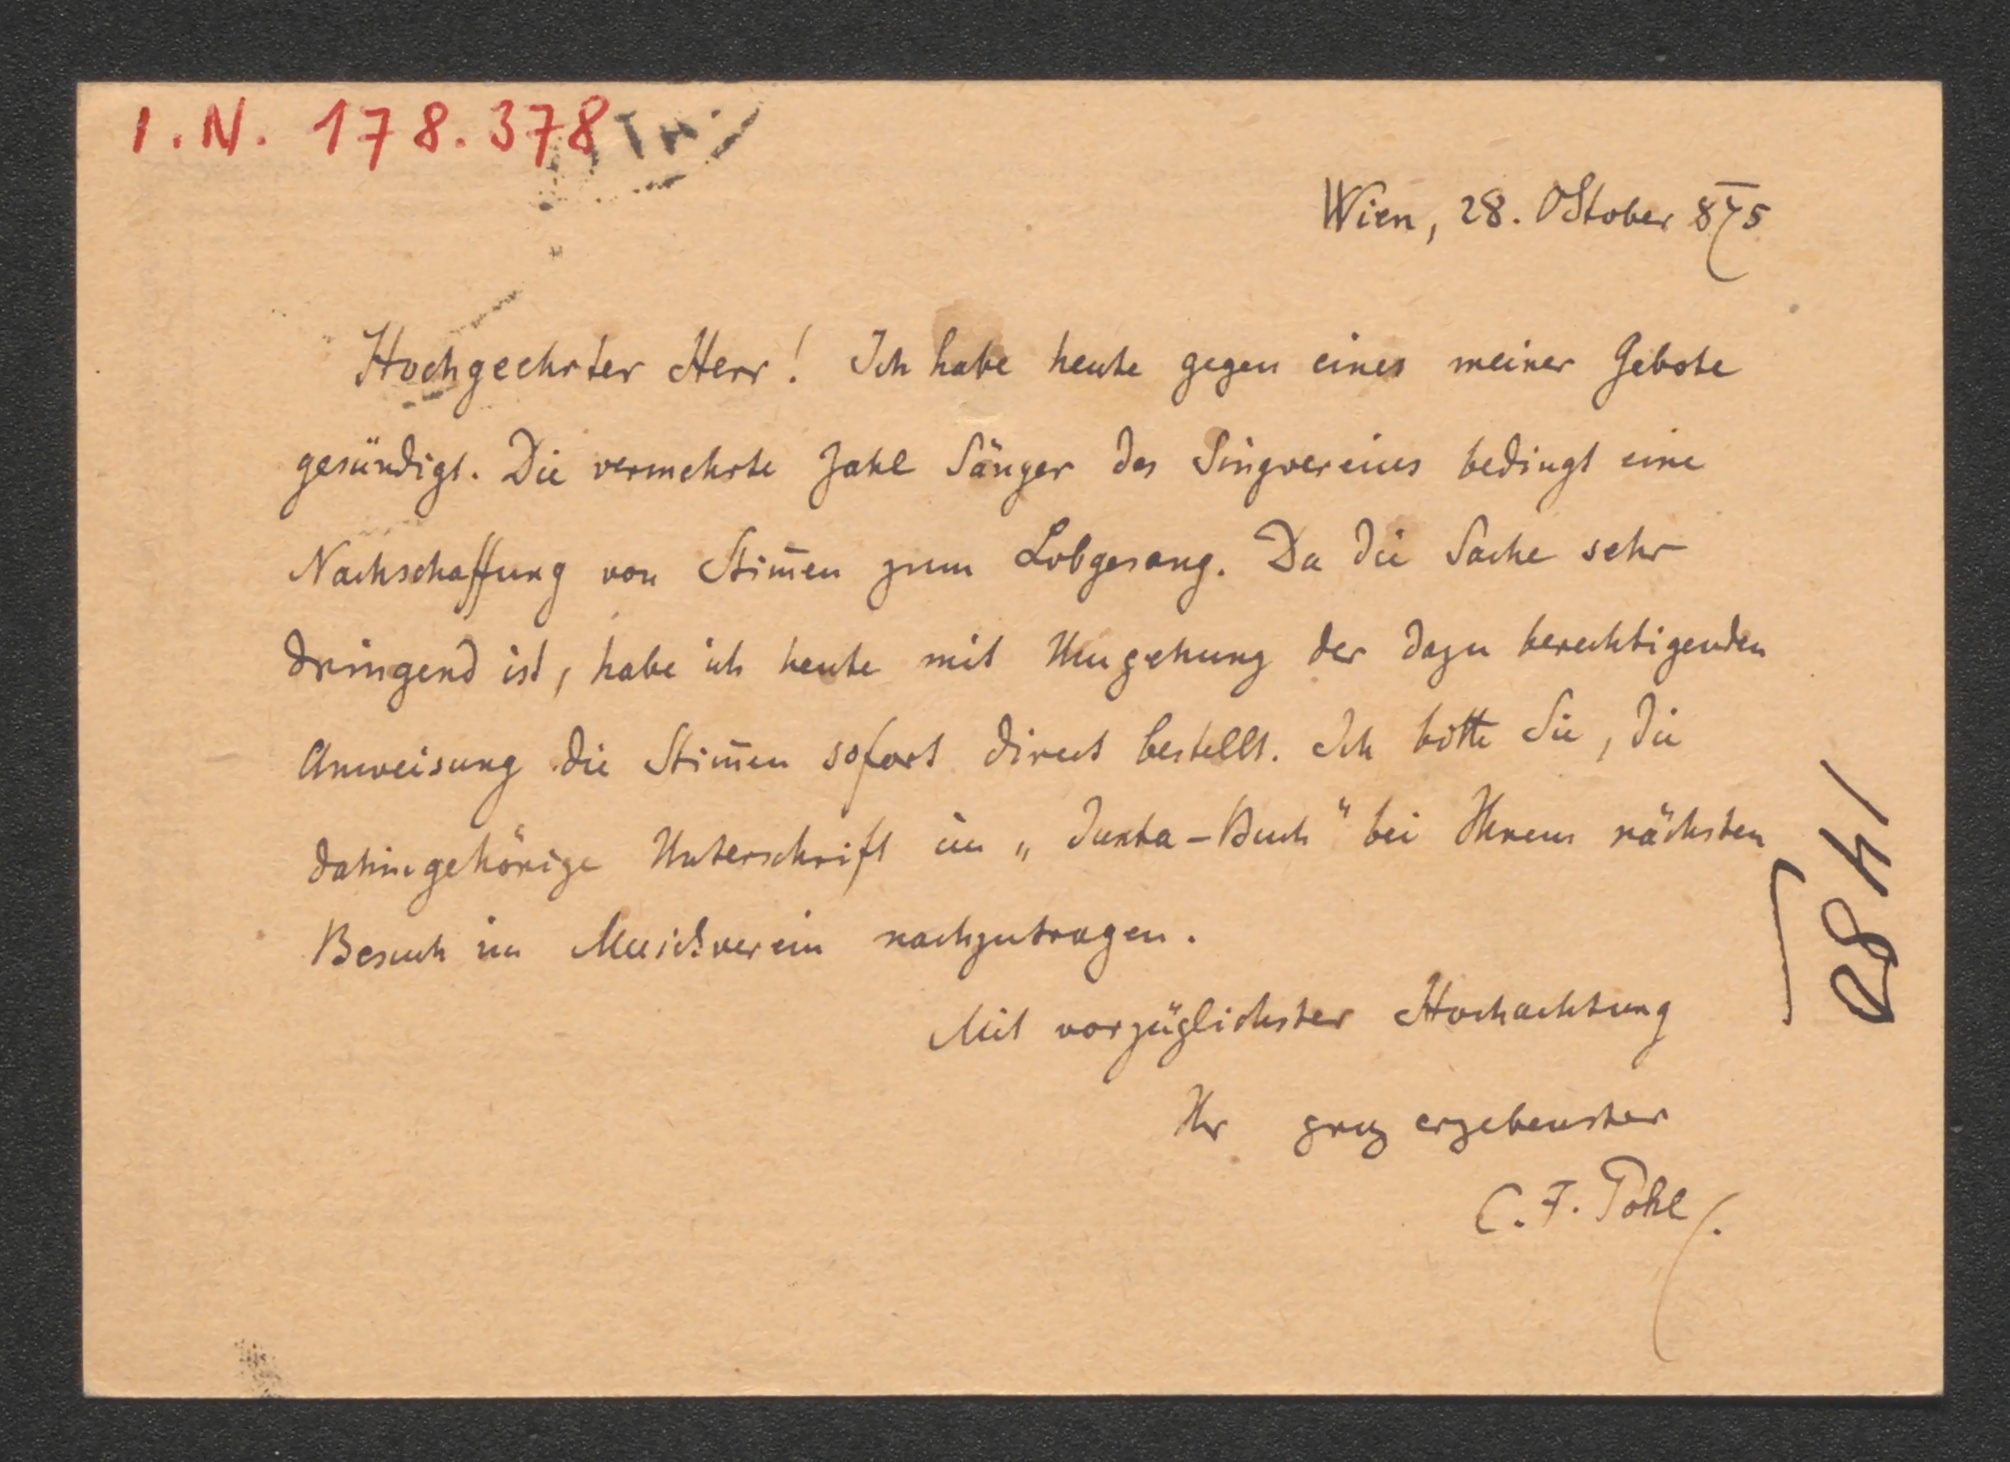 I.N. 178.378
Wien, 28. Oktober 875
Hochgeehrter Herr! Ich habe heute gegen eines meiner Gebote
gesündigt. Die vermehrte Zahl Sänger des Singvereines bedingt eine
Nachschaffung von Stim̅en zum Lobgesang. Da die Sache sehr
dringend ist, habe ich heute mit Umgehung der dazu berechtigenden
Anweisung die Stim̅en sofort direct bestellt. Ich bitte Sie, die
dahingehörige Unterschrift im „Juxta-Buch" bei Ihrem nächsten
Besuch im Musikverein nachzutragen.
Mit vorzüglichster Hochachtung
Ihr ganz ergebenster
C. F. Pohl